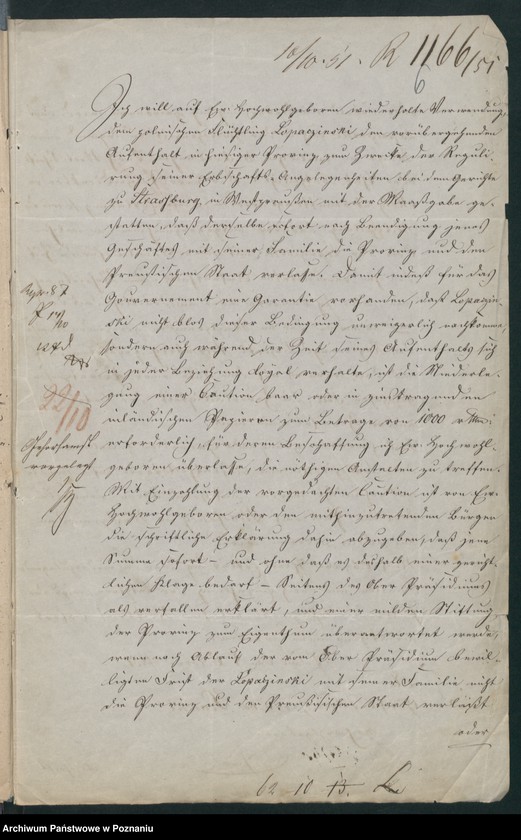 10/10. 51. R 1166/51
Ich will auf Ew. Hochwohlgeboren wiederholte Verwendung,
dem polnischen Flüchtling Lopaczinski den vorübergehenden
Aufenthalt in hiesiger Provinz zum Zwecke der Reguli-
rung seiner Erbschafts-Angelegenheiten bei dem Gerichte
zu Strasburg, in Westpreußen mit der Maaßgabe ge-
statten, daß derselbe sofort nach Beendigung jenes
Geschäftes mit seiner Familie die Provinz und den
Preußischen Staat verlasse. Damit indeß für das
Gouvernement eine Garantie vorhanden, daß Lopaczin-
ski nicht blos dieser Bedingung unweigerlich nachkomme,
sondern auch während der Zeit seines Aufenthalts sich
in jeder Beziehung loyal verhalte, ist die Niederle-
gung einer Caution baar oder in zinstragenden
inländischen Papieren zum Betrage von 1000
erforderlich, für deren Beschaffung ich Ew. Hochwohl-
geboren überlasse, die nöthigen Anstalten zu treffen.
Mit Einzahlung der vorgedachten Caution ist von Ew.
Hochwohlgeboren oder den mithinzutretenden Bürgen
die schriftliche Erklärung dahin abzugeben, daß jene
Summe sofort – und ohne daß es deshalb einer gericht-
lichen Klage bedarf – Seitens des Ober Präsidiums
als verfallen erklärt, und einer milden Stiftung
der Provinz zum Eigenthum überantwortet werde,
wenn nach Ablauf der vom Ober Präsidium bewil-
ligten Frist der Lopaczinski mit seiner Familie nicht
die Provinz und den Preußischen Staat verläßt
oder
22/10
Gehorsamst
vorgelegt
62 10 13.
Archiwum Państwowe w Poznaniu
Archiwum Państwowe w Poznaniu